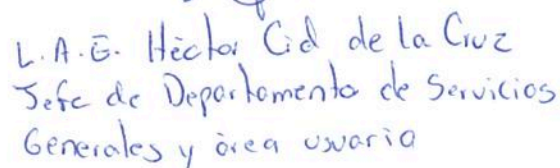 L.A.E. Héctor Cid de la Cruz
Jefe de Departamento de Servicios
Generales y área usuaria